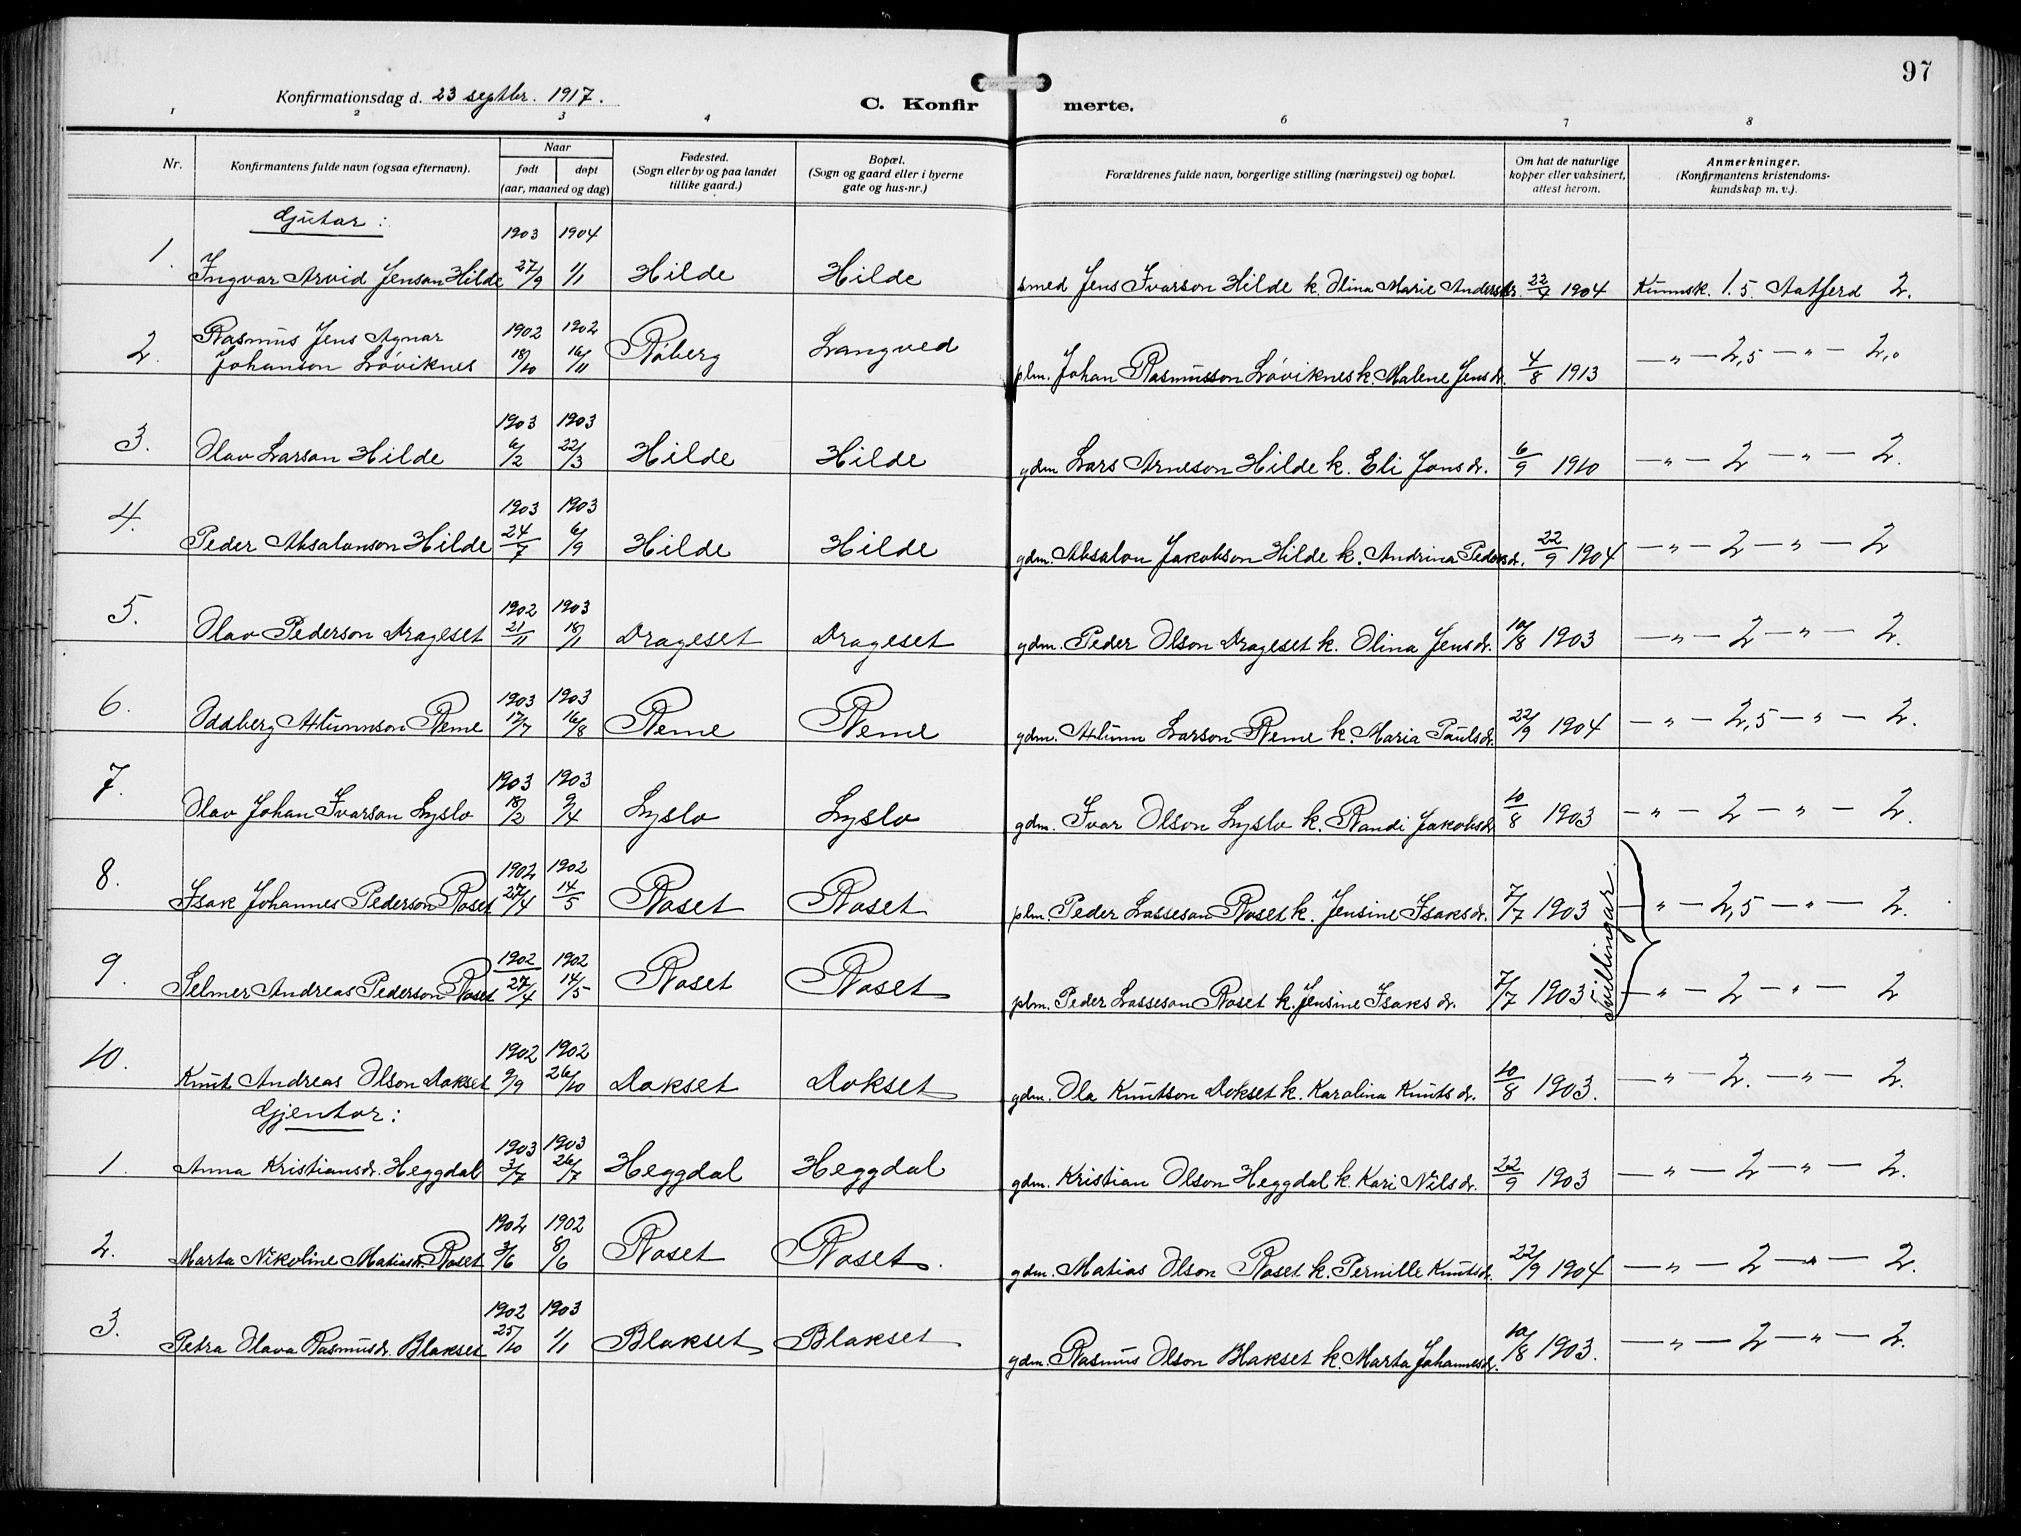 97
Konfirmationsdag d. 23 septbr. 1917.
C. Konfir merte.
1 2 3 4 6 7 8
Nr.
Konfirmantens fulde navn (ogsaa efternavn).
Naar
født døpt
(aar, maaned og dag)
Fødested.
(Sogn eller by og paa landet
tillike gaard.)
Bopæl.
(Sogn og gaard eller i byerne
gate og hus-nr.)
Forældrenes fulde navn, borgerlige stilling (næringsvei) og bopæl.
Om hat de naturlige
kopper eller vaksinert,
attest herom.
Anmerkninger.
(Konfirmantens kristendoms-
kundskap m. v.).
Gutar:
1903 1904
1. Ingvar Arvid Jenson Hilde 27/9 1/1 Hilde Hilde smed Jens Ivarson Hilde k. Olina Marie Andersdr. 22/4 1904 Kunnsk. 1.5 Aatferd 2.
Rasmus Jens Agnar 1902 1902
2. Johanson Løviknes 18/10 16/11 Røberg Langved plm. Johan Rasmusson Løviknes k. Malene Jensdr. 4/8 1913 — „ — 2,5 — „ — 2,0
1903 1903
3. Olav Larson Hilde 6/2 22/3 Hilde Hilde gdm Lars Arneson Hilde k. Eli Jonsdr. 6/9 1910 — „ — 2 — „ — 2.
1903 1903
4. Peder Absalonson Hilde 24/7 6/9 Hilde Hilde gdm. Absalon Jakobson Hilde k. Andrina Pedersdr. 22/9 1904 — „ — 2 — „ — 2
1902 1903
5. Olav Pederson Drageset 21/11 18/1 Drageset Drageset gdm. Peder Olson Drageset k. Olina Jensdr. 10/8 1903 — „ — 2 — „ — 2.
1903 1903
6. Oddberg Ahlunnson Reme 17/7 16/8 Reme Reme gdm. Ahlunn Larson Reme k. Maria Paulsdr. 22/9 1904 — „ — 2,5 — „ — 2.
1903 1903
7. Olav Johan Ivarson Lyslo 18/2 9/4 Lyslo Lyslo gdm. Ivar Olson Lyslo k. Randi Jakobsdr 10/8 1903 — „ — 2 — „ — 2.
1902 1902
8. Isak Johannes Pederson Roset 27/4 14/5 Roset Roset plm. Peder Lasseson Roset k. Jensine Isaksdr. 7/7 1903 — „ — 2,5 — „ — 2.
Tvillingar
1902 1902
9. Selmer Andreas Pederson Roset 27/4 14/5 Roset Roset plm. Peder Lasseson Roset k. Jensine Isaksdr. 7/7 1903 — „ — 2 — „ — 2
1902 1902
10. Knut Andreas Olson Dokset 9/9 26/10 Dokset Dokset gdm. Ola Knutson Dokset k. Karolina Knutsdr. 10/8 1903. — „ — 2. — „ — 2.
Gjentor:
1903 1903
1. Anna Kristiansdr. Heggdal 3/7 26/7 Heggdal Heggdal gdm. Kristian Olson Heggdal k. Kari Nilsdr. 22/9 1903 — „ — 2 — „ — 2.
1902 1902
2. Marta Nikoline Matiasdr. Roset 3/6 8/6 Roset Roset. gdm. Matias Olson Roset k. Pernille Knutsdr. 22/9 1904 — „ — 2 — „ — 2.
1902 1903
3. Petra Olava Rasmusdr. Blakset 25/10 1/1 Blakset Blakset gdm. Rasmus Olson Blakset k. Marta Johannesdr. 10/8 1903. — „ — 2 — „ — 2.